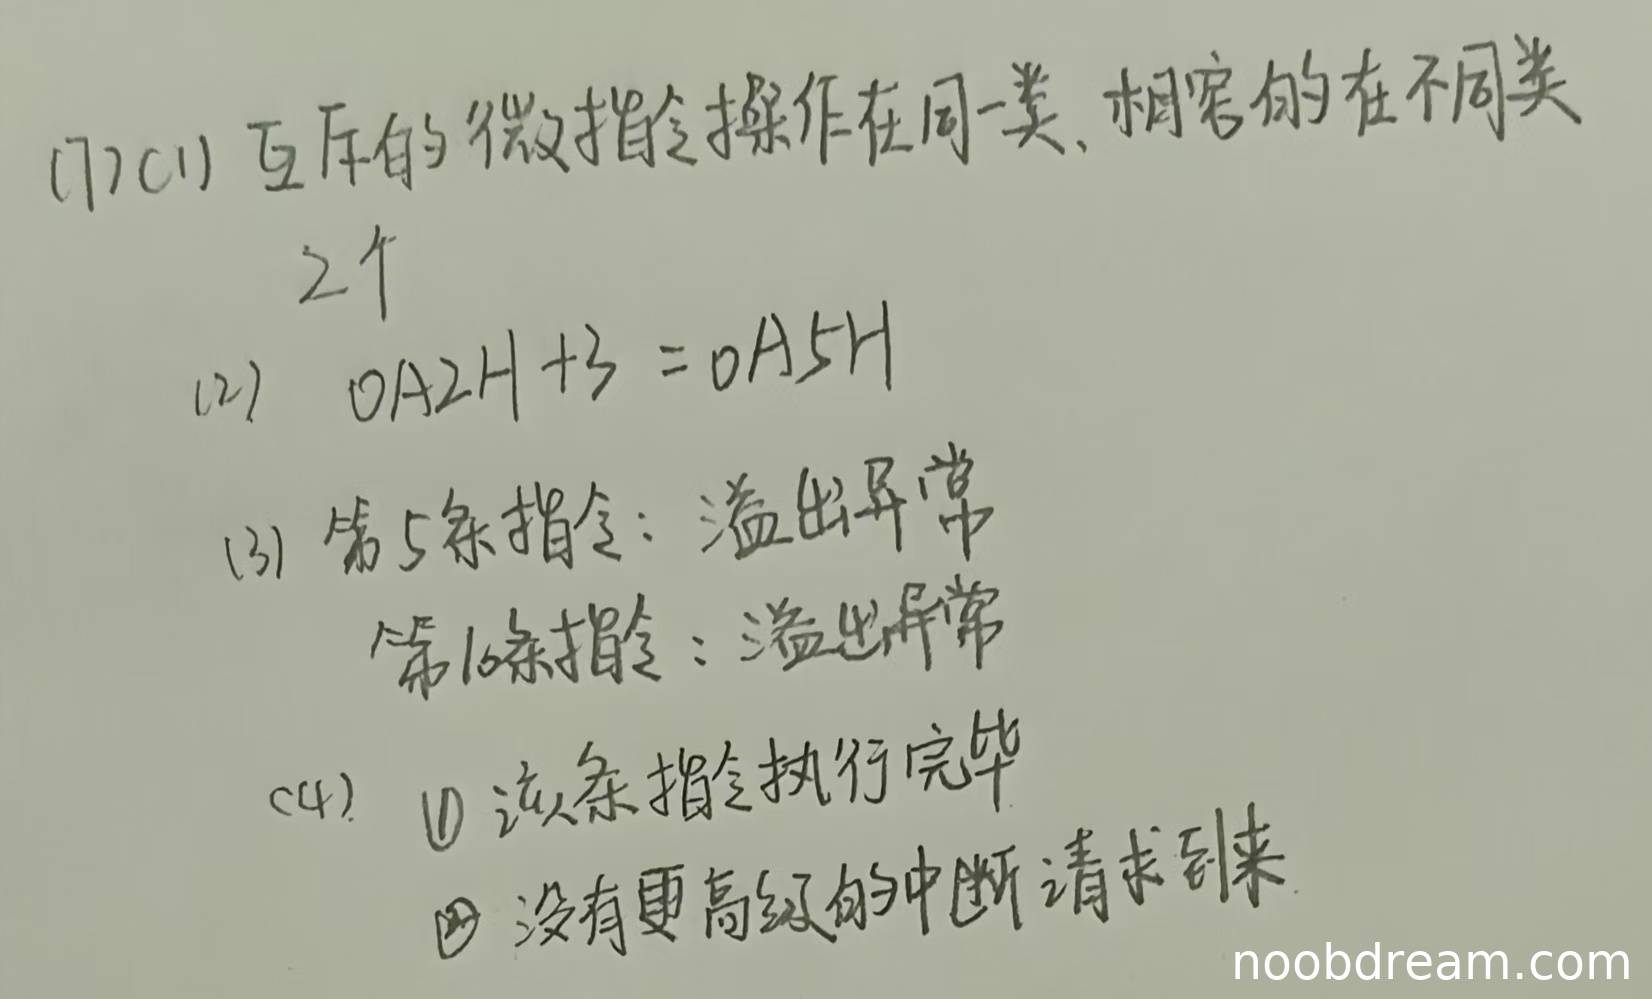 (7)(1) 互斥的微指令操作在同一类、相容的在不同类
2个
(2) 0A2H+3=0A5H
(3) 第5条指令：溢出异常
第10条指令：溢出异常
(4). ① 该条指令执行完毕
② 没有更高级的中断请求到来.
noobdream.com